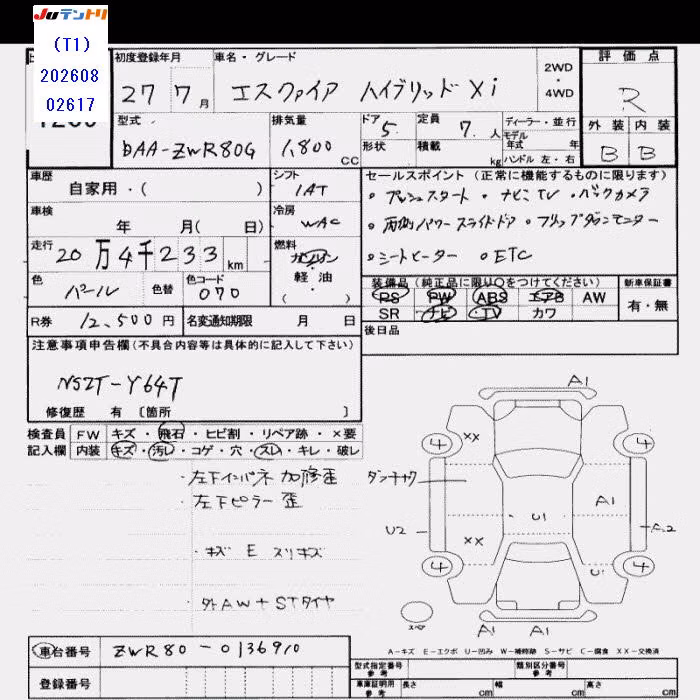 JUテントリ
(T1)
202608
02617
初度登録年月
27年7月
車名・グレード
エスクァイア ハイブリッド Xi
2WD
・
4WD
評価点
R
外装 内装
B B
型式
DAA-ZWR80G
排気量
1,800 CC
ドア 5
形状
定員 7. 人
積載 kg
ディーラー・並行
モデル
年式 年
ハンドル 左・右
車歴
自家用・( )
シフト
IAT
セールスポイント (正常に機能するものに限ります)
・プッシュスタート ・ナビTV ・バックカメラ
・両側パワースライドドア ・フリップダウンモニター
・シートヒーター ・ETC
車検
年 月( 日)
冷房
WAC
走行
20万4千233km
燃料
ガソリン
軽・油
( )
色
パール
色替
色コード
070
装備品 (純正品に限り○をつけてください)
PS PW ABS エアB AW
SR ナビ ・TV カワ
新車保証書
有・無
R券 12,500円
名変通知期限 月 日
後日品
注意事項申告欄(不具合内容等は具体的に記入して下さい)
NSZT-Y64T
修復歴 有 〔箇所 〕
検査員 FW キズ・飛石・ヒビ割・リペア跡・×要
記入欄 内装 キズ・汚レ・コゲ・穴・スレ・キレ・破レ
・左下インパネ 加修歪
・左下ピラー 歪
・キズ E スリキズ
・外AW+STタイヤ
A1
4 ×× 4
A1
U1
U2
A2
××
4 U1 4
スペア
A1 A1
A-キズ E-エクボ U-凹み W-補修跡 S-サビ C-腐食 XX-交換済
車台番号 ZWR80-0136910
登録番号
型式指定番号
参考
類別区分番号
参考
車庫証明用
参考
長さ cm
幅 cm
高さ cm